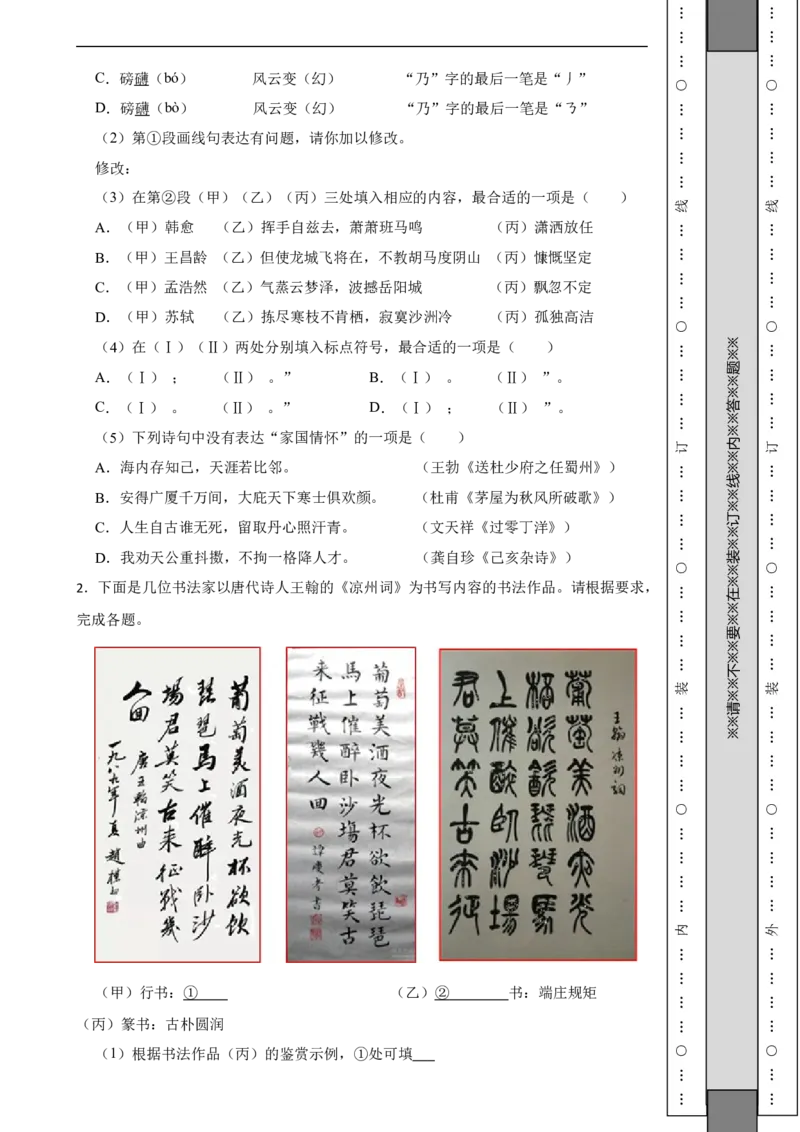 C．磅礴（bó） 风云变（幻） “乃”字的最后一笔是“丿”
D．磅礴（bò） 风云变（幻） “乃”字的最后一笔是“ㄋ”
（2）第①段画线句表达有问题，请你加以修改。
修改：
（3）在第②段（甲）（乙）（丙）三处填入相应的内容，最合适的一项是（ ）
A．（甲）韩愈 （乙）挥手自兹去，萧萧班马鸣 （丙）潇洒放任
B．（甲）王昌龄 （乙）但使龙城飞将在，不教胡马度阴山 （丙）慷慨坚定
C．（甲）孟浩然 （乙）气蒸云梦泽，波撼岳阳城 （丙）飘忽不定
D．（甲）苏轼 （乙）拣尽寒枝不肯栖，寂寞沙洲冷 （丙）孤独高洁
（4）在（Ⅰ）（Ⅱ）两处分别填入标点符号，最合适的一项是（ ）
A．（Ⅰ） ； （Ⅱ） 。” B．（Ⅰ） 。 （Ⅱ） ”。
C．（Ⅰ） 。 （Ⅱ） 。” D．（Ⅰ） ； （Ⅱ） ”。
（5）下列诗句中没有表达“家国情怀”的一项是（ ）
A．海内存知己，天涯若比邻。 （王勃《送杜少府之任蜀州》）
B．安得广厦千万间，大庇天下寒士俱欢颜。 （杜甫《茅屋为秋风所破歌》）
C．人生自古谁无死，留取丹心照汗青。 （文天祥《过零丁洋》）
D．我劝天公重抖擞，不拘一格降人才。 （龚自珍《己亥杂诗》）
2．下面是几位书法家以唐代诗人王翰的《凉州词》为书写内容的书法作品。请根据要求，
完成各题。
葡萄美酒夜光杯欲饮
琵琶马上催醉卧沙
場君莫笑古来征戰幾
人回
唐王翰凉州曲
一九八九年夏趙樸初
葡萄美酒夜光杯欲飲琵琶
馬上催醉卧沙場君莫笑古
来征戰幾人回
王翰凉州詞
葡萄美酒夜光
桮欲飲琵琶馬
上催醉卧沙場
君莫笑古来征
（甲）行书：①____ （乙）②________书：端庄规矩
（丙）篆书：古朴圆润
（1）根据书法作品（丙）的鉴赏示例，①处可填___
… … ○ … … 线 … … ○ … … 订 … … ○ … … 装 … … ○ … … 内 … … ○ … …
※※请※※不※※要※※在※※装※※订※※线※※内※※答※※题※※
… … ○ … … 线 … … ○ … … 订 … … ○ … … 装 … … ○ … … 外 … … ○ … …